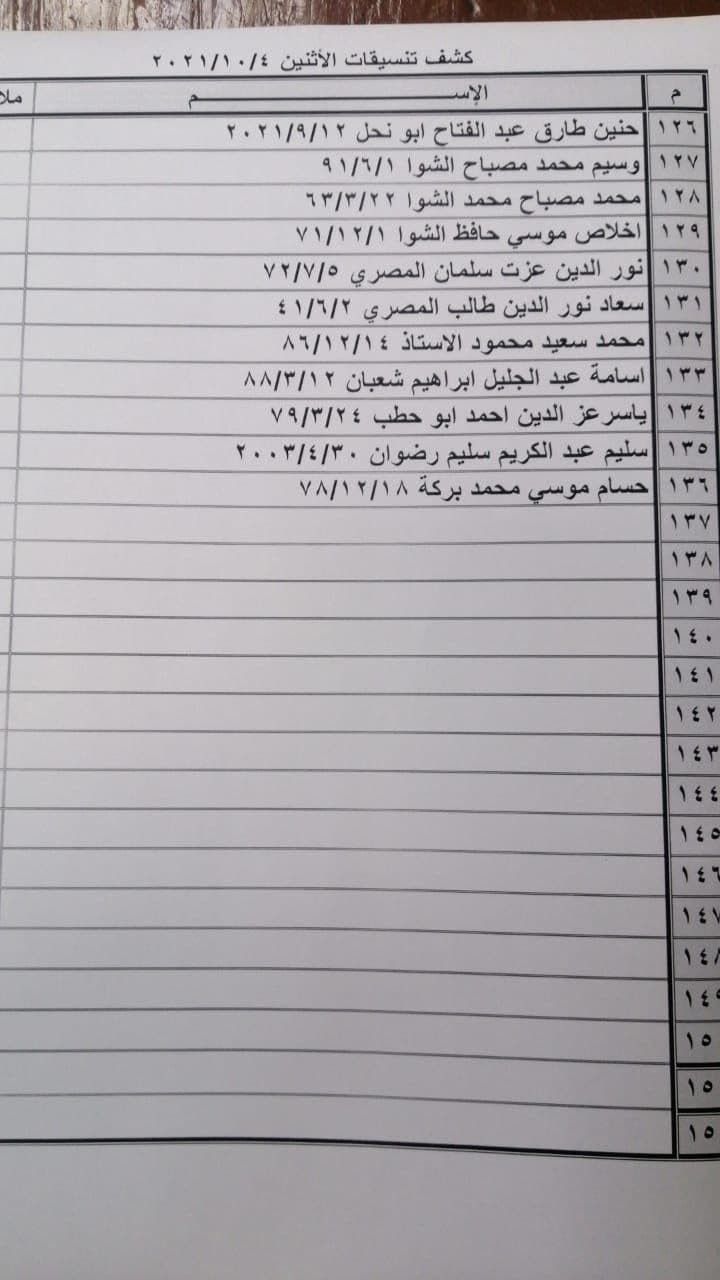 كشف تنسيقات الأثنين ٢٠٢١/١٠/٤
م الإســـــــــم
١٢٦ حنين طارق عبد الفتاح ابو نحل ٢٠٢١/٩/١٢
١٢٧ وسيم محمد مصباح الشوا ٩١/٦/١
١٢٨ محمد مصباح محمد الشوا ٦٣/٣/٢٢
١٢٩ اخلاص موسي حافظ الشوا ٧١/١٢/١
١٣٠ نور الدين عزت سلمان المصري ٧٢/٧/٥
١٣١ سعاد نور الدين طالب المصري ٤١/٦/٢
١٣٢ محمد سعيد محمود الاستاذ ٨٦/١٢/١٤
١٣٣ اسامة عبد الجليل ابراهيم شعبان ٨٨/٣/١٢
١٣٤ ياسر عز الدين احمد ابو حطب ٧٩/٣/٢٤
١٣٥ سليم عبد الكريم سليم رضوان ٢٠٠٣/٤/٣٠
١٣٦ حسام موسي محمد بركة ٧٨/١٢/١٨
١٣٧
١٣٨
١٣٩
١٤٠
١٤١
١٤٢
١٤٣
١٤٤
١٤٥
١٤٦
١٤٧
١٤٨
١٤٩
١٥
١٥
١٥